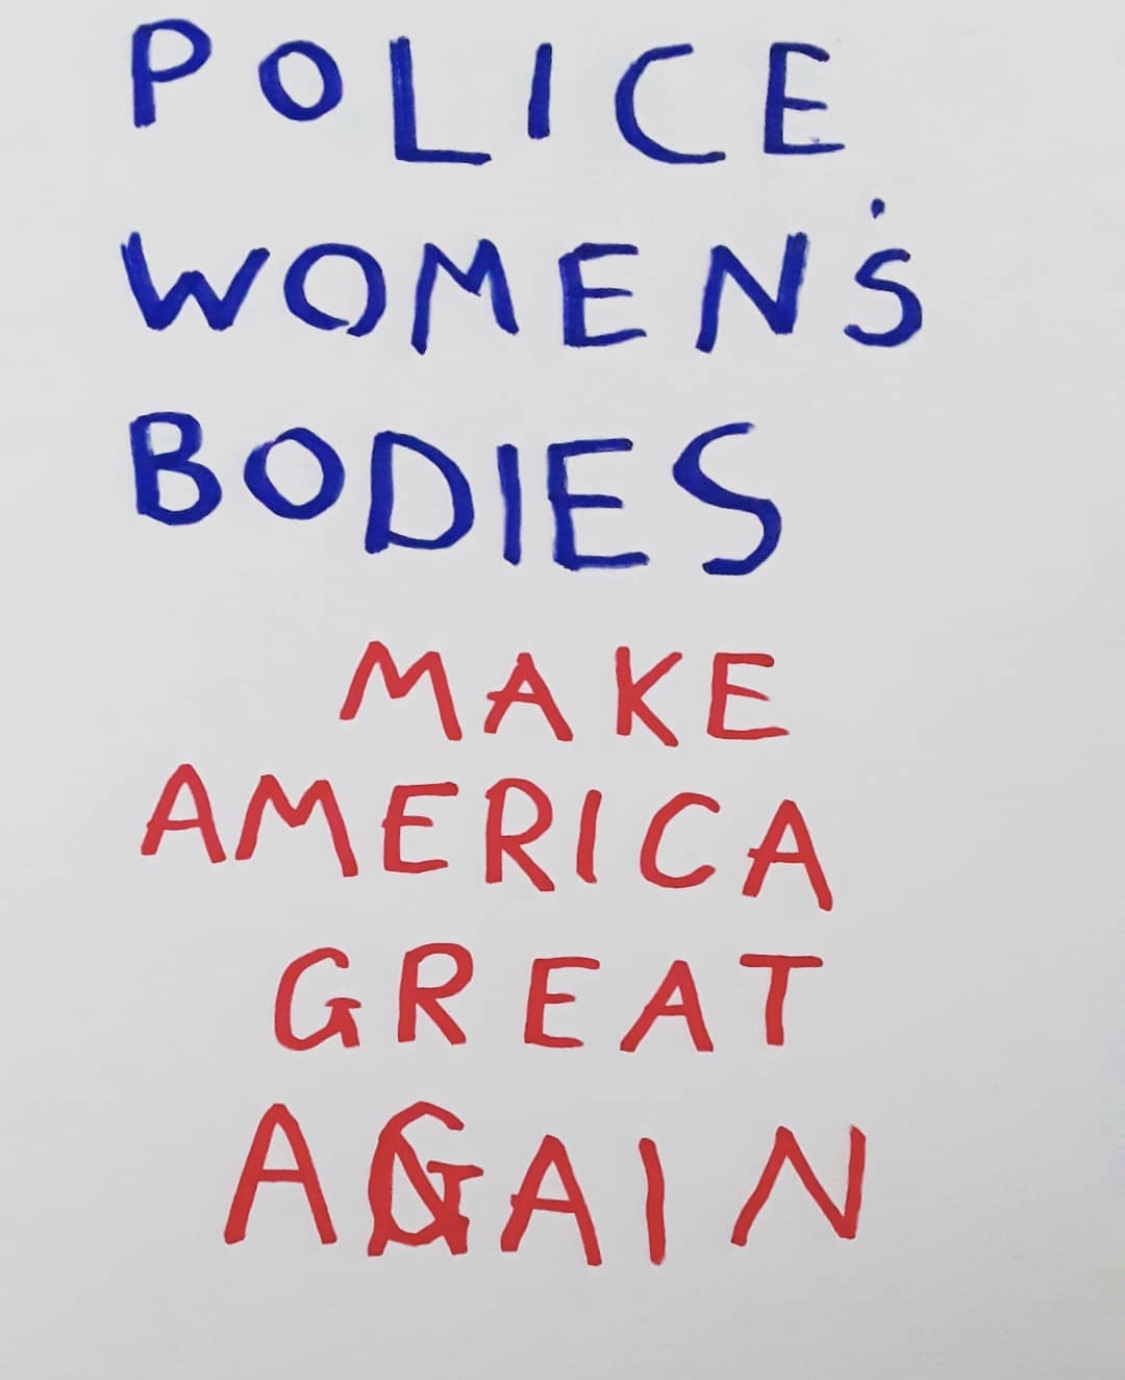 POLICE
WOMEN'S
BODIES
MAKE
AMERICA
GREAT
AGAIN